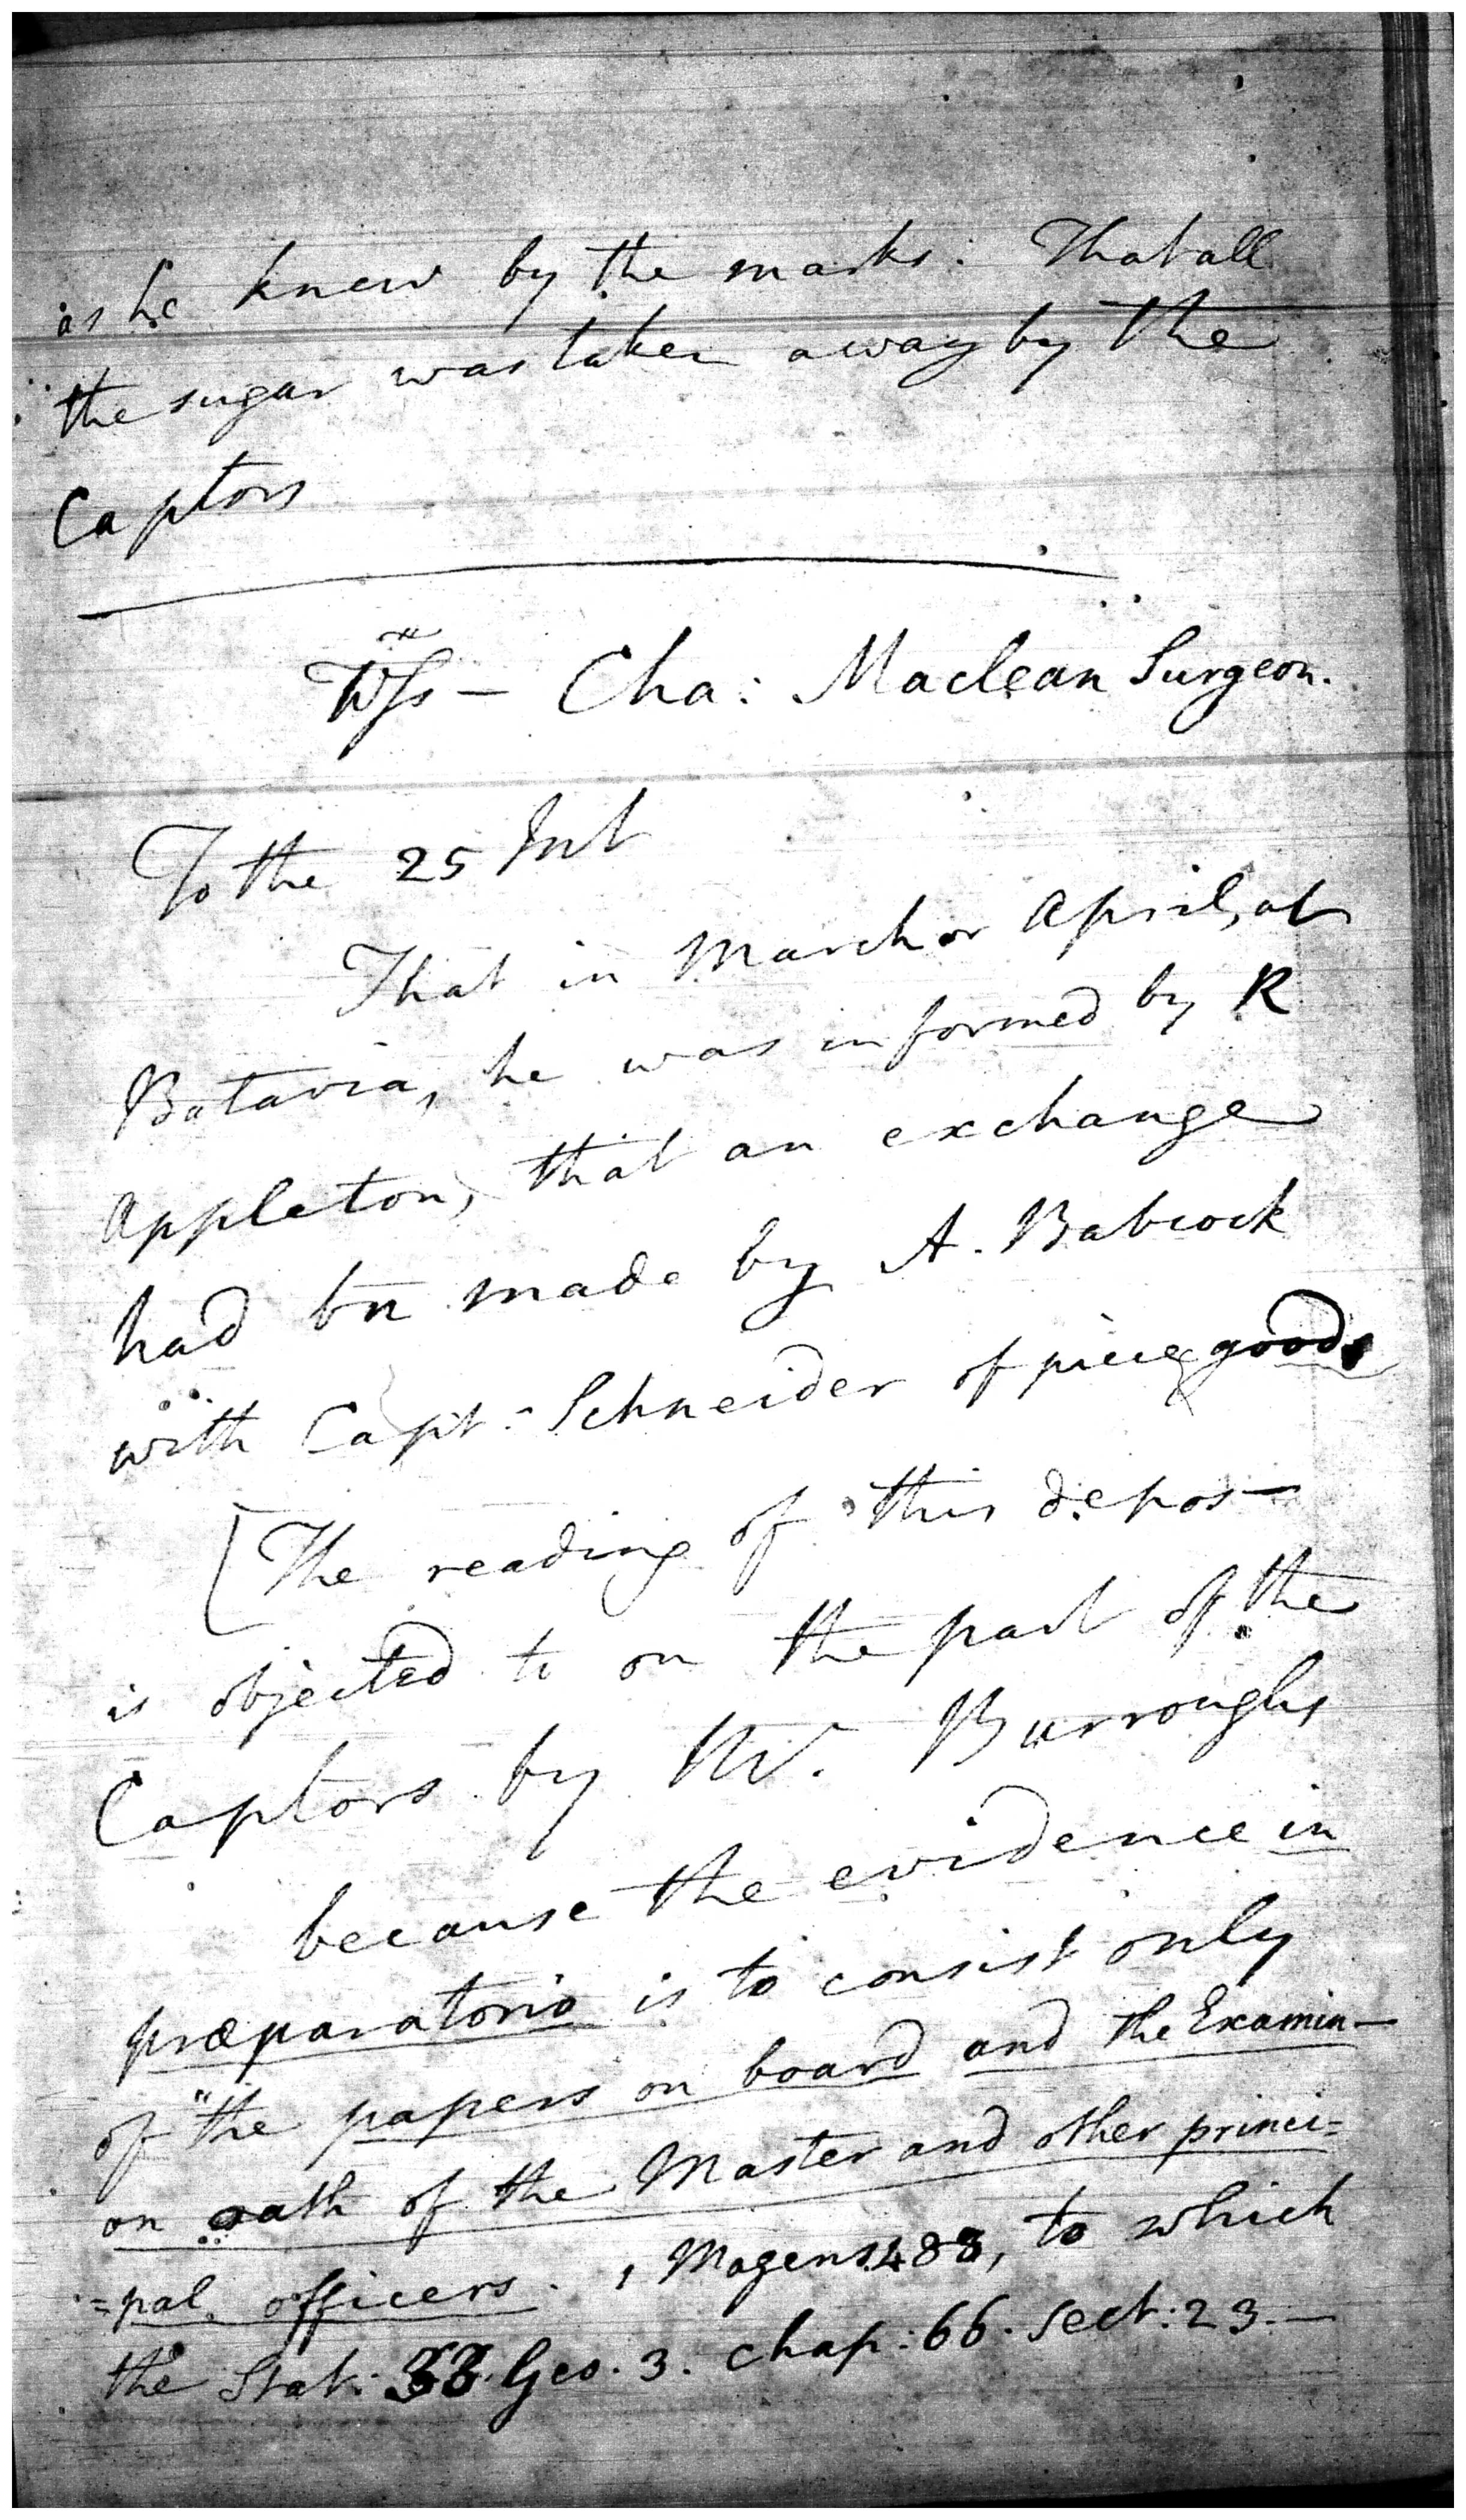 as he knew by the marks: That all
the sugar was taken away by the
Captors
Wss – Cha: Maclean Surgeon.
To the 25 Int
That in March or April, at
Batavia, he was informed by R
Appleton, that an exchange
had bn made by A. Babcock
with Capt: Schneider of piece goods
[The reading of this depos–
is objected to on the part of the
Captors by Mr. Burroughs
because the evidence in
præparatorio is to consist only
of "the papers on board and the Examin–
on oath of the Master and other princi=
=pal officers. , Magens. 488, to which
the Stat: 33. Geo. 3. chap: 66. sect: 23.–